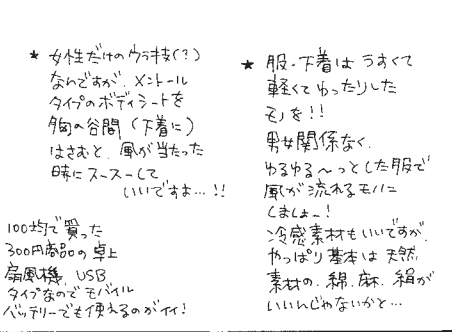 ★ 女性だけのウラ技(?)
なんですが、メントール
タイプのボディシートを
胸の谷間(下着に)
はさむと、風が当たった
時にスースーして
いいですよ…!!
100均で買った
300円商品の卓上
扇風機、USB
タイプなのでモバイル
バッテリーでも使えるのがイイ!
★ 服・下着は うすくて
軽くて ゆったりした
モノを!!
男女関係なく、
ゆるゆる〜っとした服で
風が流れるモノに
しましょー!
冷感素材もいいですが、
やっぱり基本は天然
素材の、綿、麻、絹が
いいんじゃないかと…